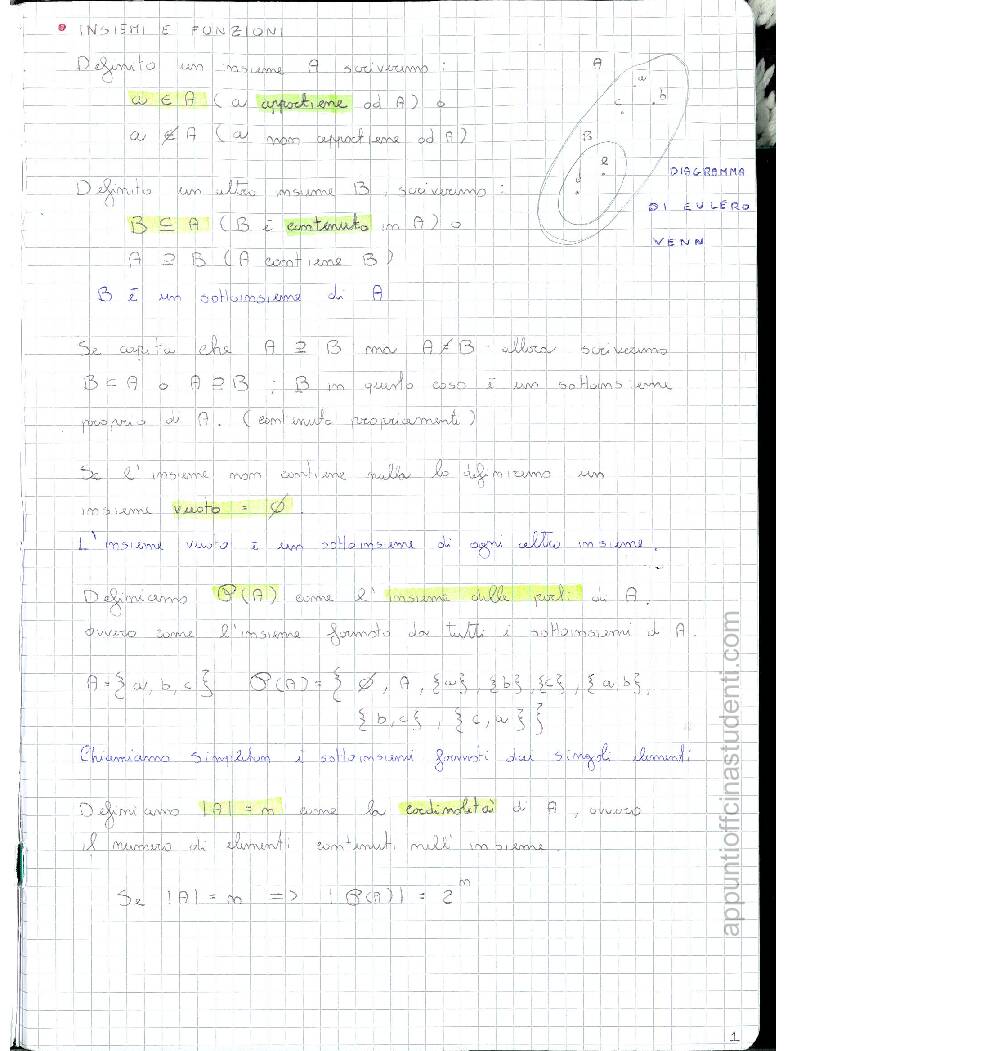 INSIEMI E FUNZIONI
Definito un insieme A scriveremo :
a ∈ A ( a appartiene ad A ) o
a ∉ A ( a non appartiene ad A )
A
a
b
c
B
e
d
DIAGRAMMA
DI EULERO
VENN
Definito un altro insieme B , scriveremo :
B ⊆ A ( B è contenuto in A ) o
A ⊇ B ( A contiene B )
B è un sottoinsieme di A
Se capita che A ⊇ B ma A ≠ B allora scriveremo
B ⊂ A o A ⊇ B ; B in questo caso è un sottoinsieme
proprio di A. ( contenuto propriamente )
Se l'insieme non contiene nulla lo definiremo un
insieme vuoto = ∅ .
L'insieme vuoto è un sottoinsieme di ogni altro insieme .
Definiamo P(A) come l' insieme delle parti di A .
ovvero come l'insieme formato da tutti i sottoinsiemi di A .
A = { a, b, c } P(A) = { ∅ , A , {a} , {b} , {c} , {a,b} ,
{ b, c } , { c, a } }
Chiamiamo simpleton i sottoinsiemi formati dai singoli elementi
Definiamo |A| = n come la cardinalità di A , ovvero
il numero di elementi contenuti nell' insieme .
Se |A| = n => |P(A)| = 2^n
appuntioffcinastudenti.com
1